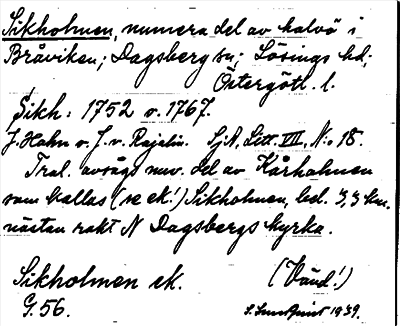 Sikholmen, numera del av halvö i
Bråviken; Dagsberg sn; Lösings hd;
Östergötl. l.
Sikh: 1752 o. 1767.
J. Hahn o. J. v. Rajalin. SjA, Litt. VIII, N:o 18.
Trol. avsågs nuv. del av Kårholmen
som kallas (se ek!) Sikholmen, bel. 3,3 km.
nästan rakt N Dagsbergs kyrka.
Sikholmen ek. (Vänd!)
G. 56. S. Sundquist 1939.